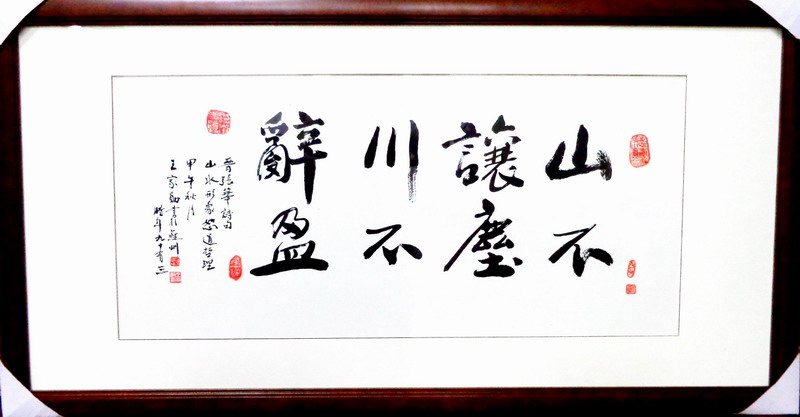 山不
讓塵
川不
辭盈
晉張華詩句
山水形象喻道哲理
甲午秋月
王家勤書於蘇州
時年九十有三